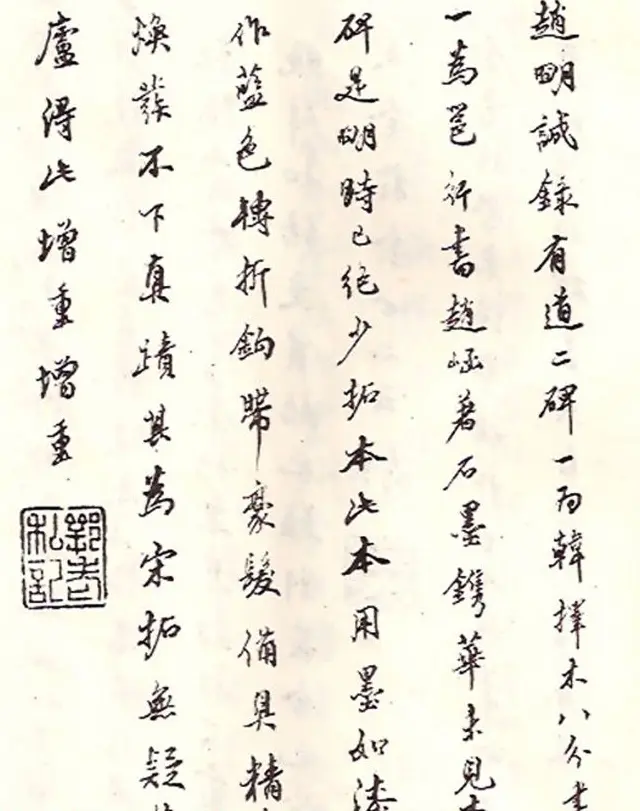 趙明誠錄有道二碑一為韓擇木八分書
一為邕行書趙崡著石墨鐫華未見
碑是明時已絕少拓本此本用墨如漆
作藍色轉折鈎帶豪髮備具精
煥發不下真蹟其為宋拓無疑
廬得此增重增重